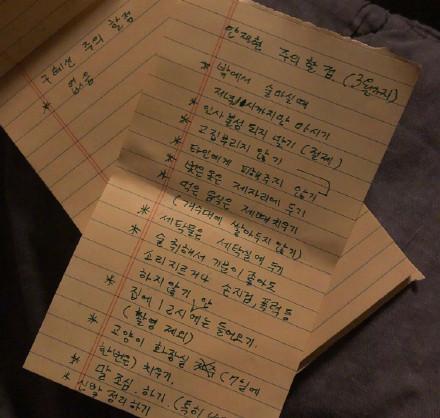 구혜선 주의 할점
* 없음
안재현 주의할점. (3월까지)
* 밖에서 술마실때
저녁 11시까지만 마시기
* 인사불성 되지 않기 (절제)
* 고집부리지 않기
* 타인에게 피해주지 않기
* 벗은 옷은 제자리에 두기
* 먹은 음식은 제때 치우기
(개수대에 쌓아두지 않기)
* 세탁물은 세탁실에 두기
* 술 취해서 기분이 좋아도
소리지르거나 손찌검, 폭력 등
하지않기
* 집에 12시 안에는 들어오기.
(촬영 제외)
* 고양이 화장실 (7일에
한번은) 치우기.
* 말 조심. 하기. (특히
* 신발 정리하기